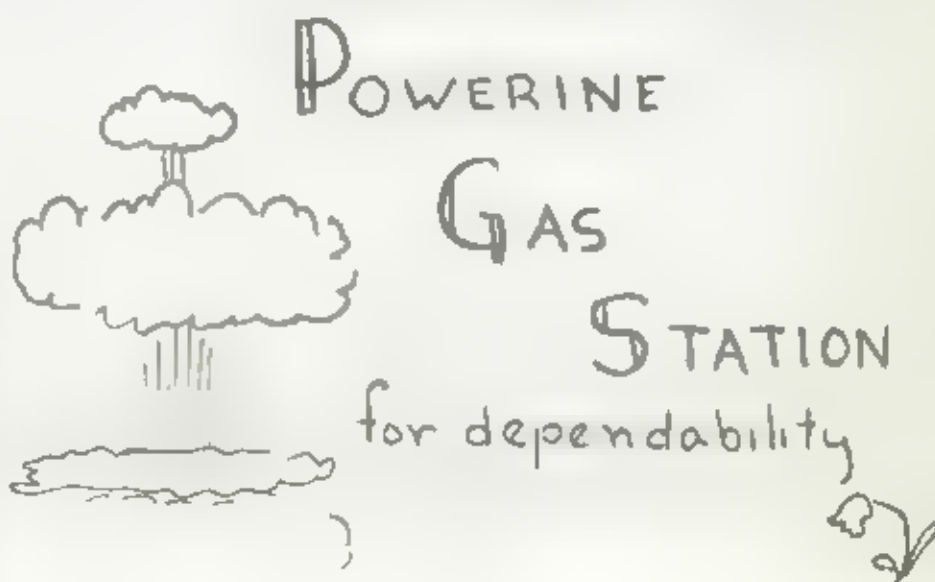 POWERINE
GAS
STATION
for dependability